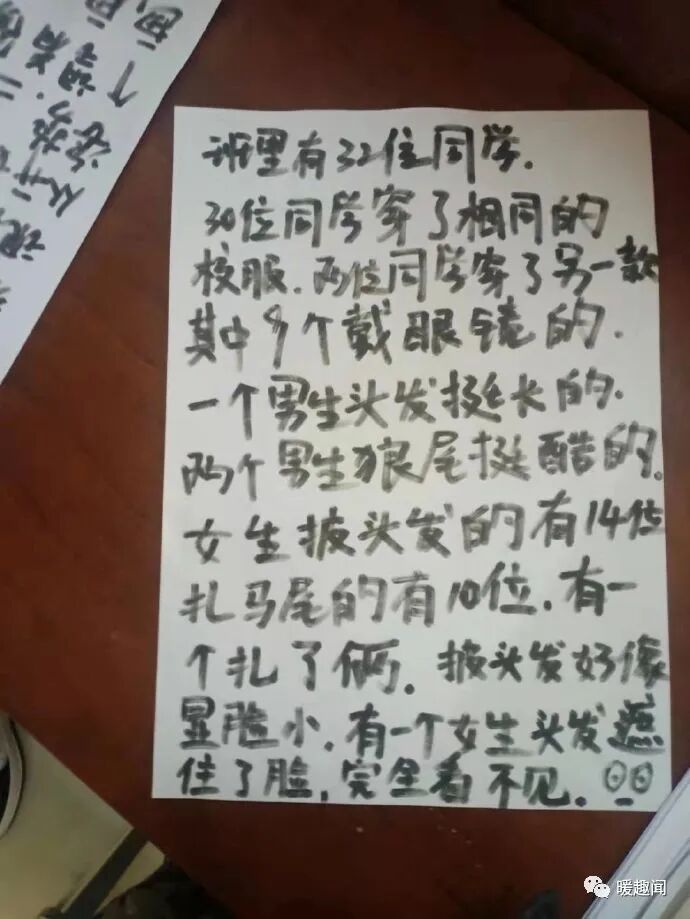 班里有32位同学.
30位同学穿了相同的
校服.两位同学穿了另一款
其中9个戴眼镜的.
一个男生头发挺长的.
两个男生狼尾挺酷的.
女生披头发的有14位
扎马尾的有10位.有一
个扎了俩.披头发好像
显脸小.有一个女生头发遮
住了脸,完全看不见.
暖趣闻